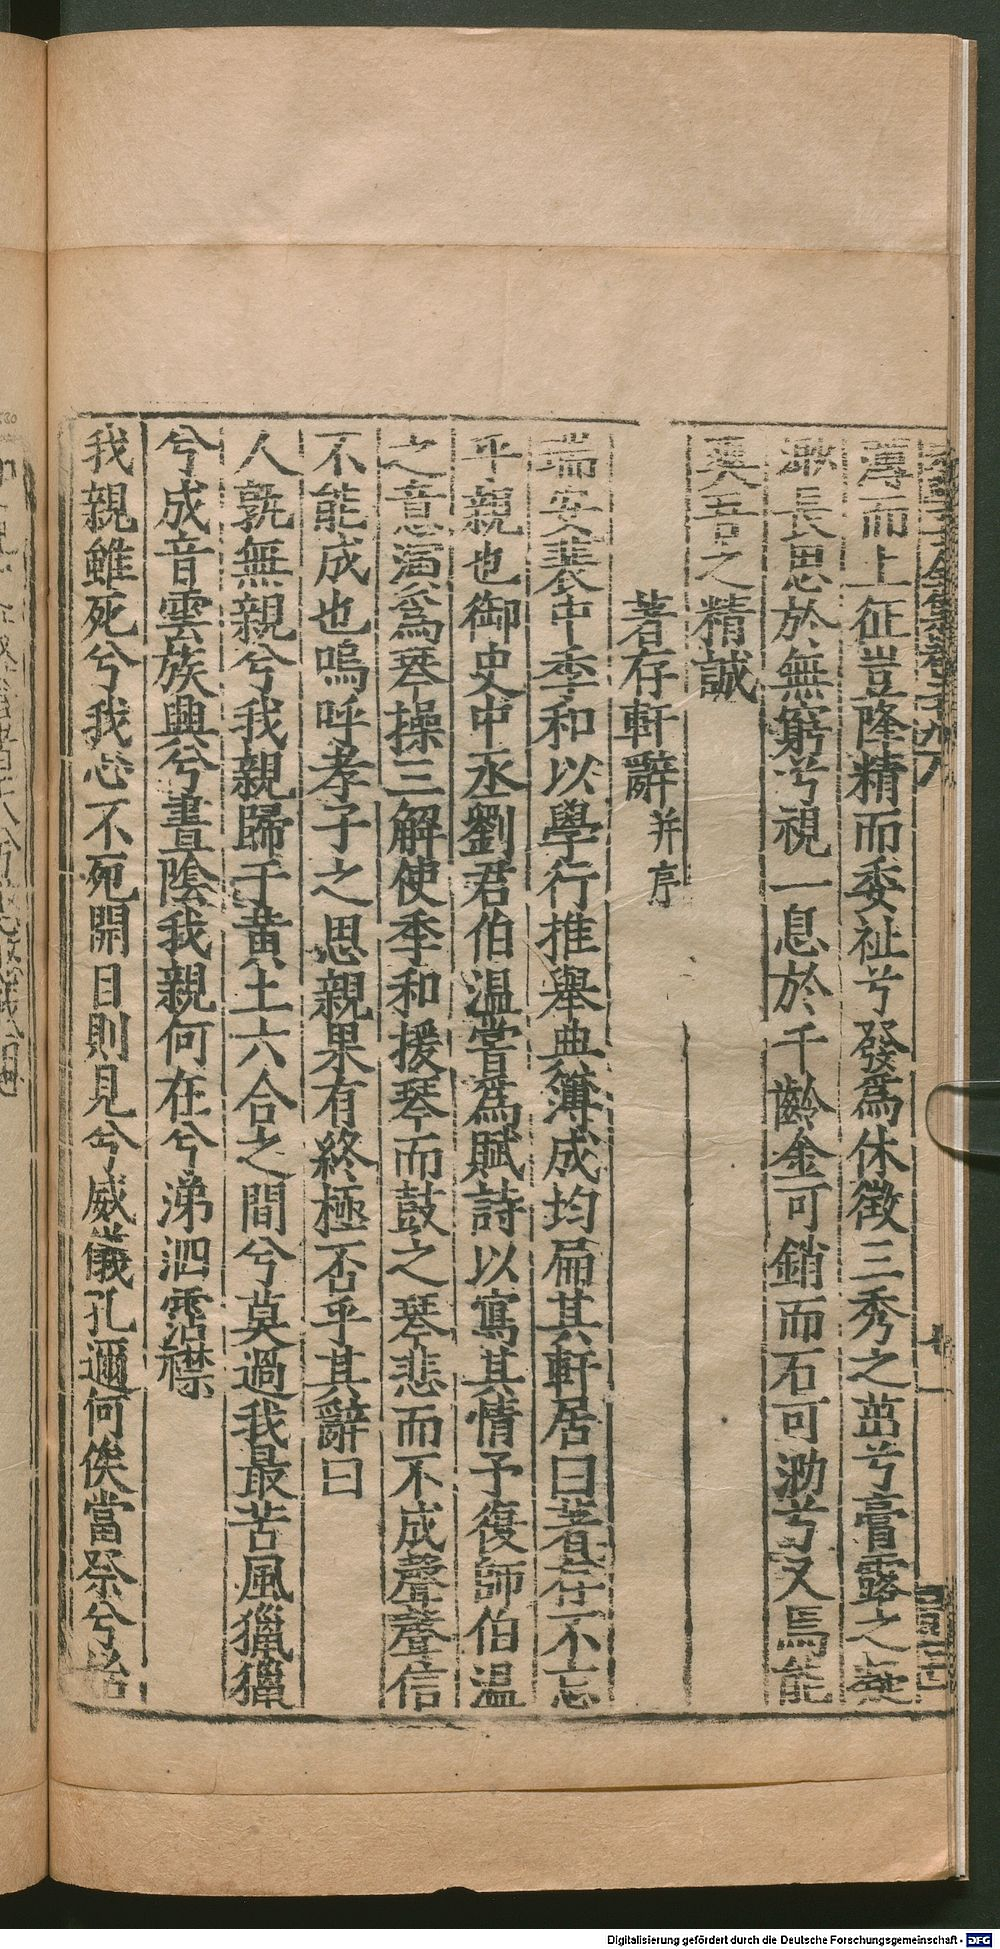 薄而上征豈隆精而委祉兮發爲休徵三秀之茁兮膏露之凝
渺長思於無窮兮視一息於千齡金可銷而石可泐兮又焉能
奭吾之精誠
著存軒辭并序
瑞安裴中季和以學行推舉典簿成均扁其軒居曰著存不忘
乎親也御史中丞劉君伯温嘗爲賦詩以寫其情予復師伯温
之意演爲琴操三解使季和援琴而鼓之琴悲而不成聲聲信
不能成也嗚呼孝子之思親果有終極否乎其辭曰
人孰無親兮我親歸于黃土六合之間兮莫過我最苦風獵獵
兮成音雲族興兮晝陰我親何在兮涕泗霑襟
我親雖死兮我心不死開目則見兮威儀孔邇何俟當祭兮始
Digitalisierung gefördert durch die Deutsche Forschungsgemeinschaft - DFG